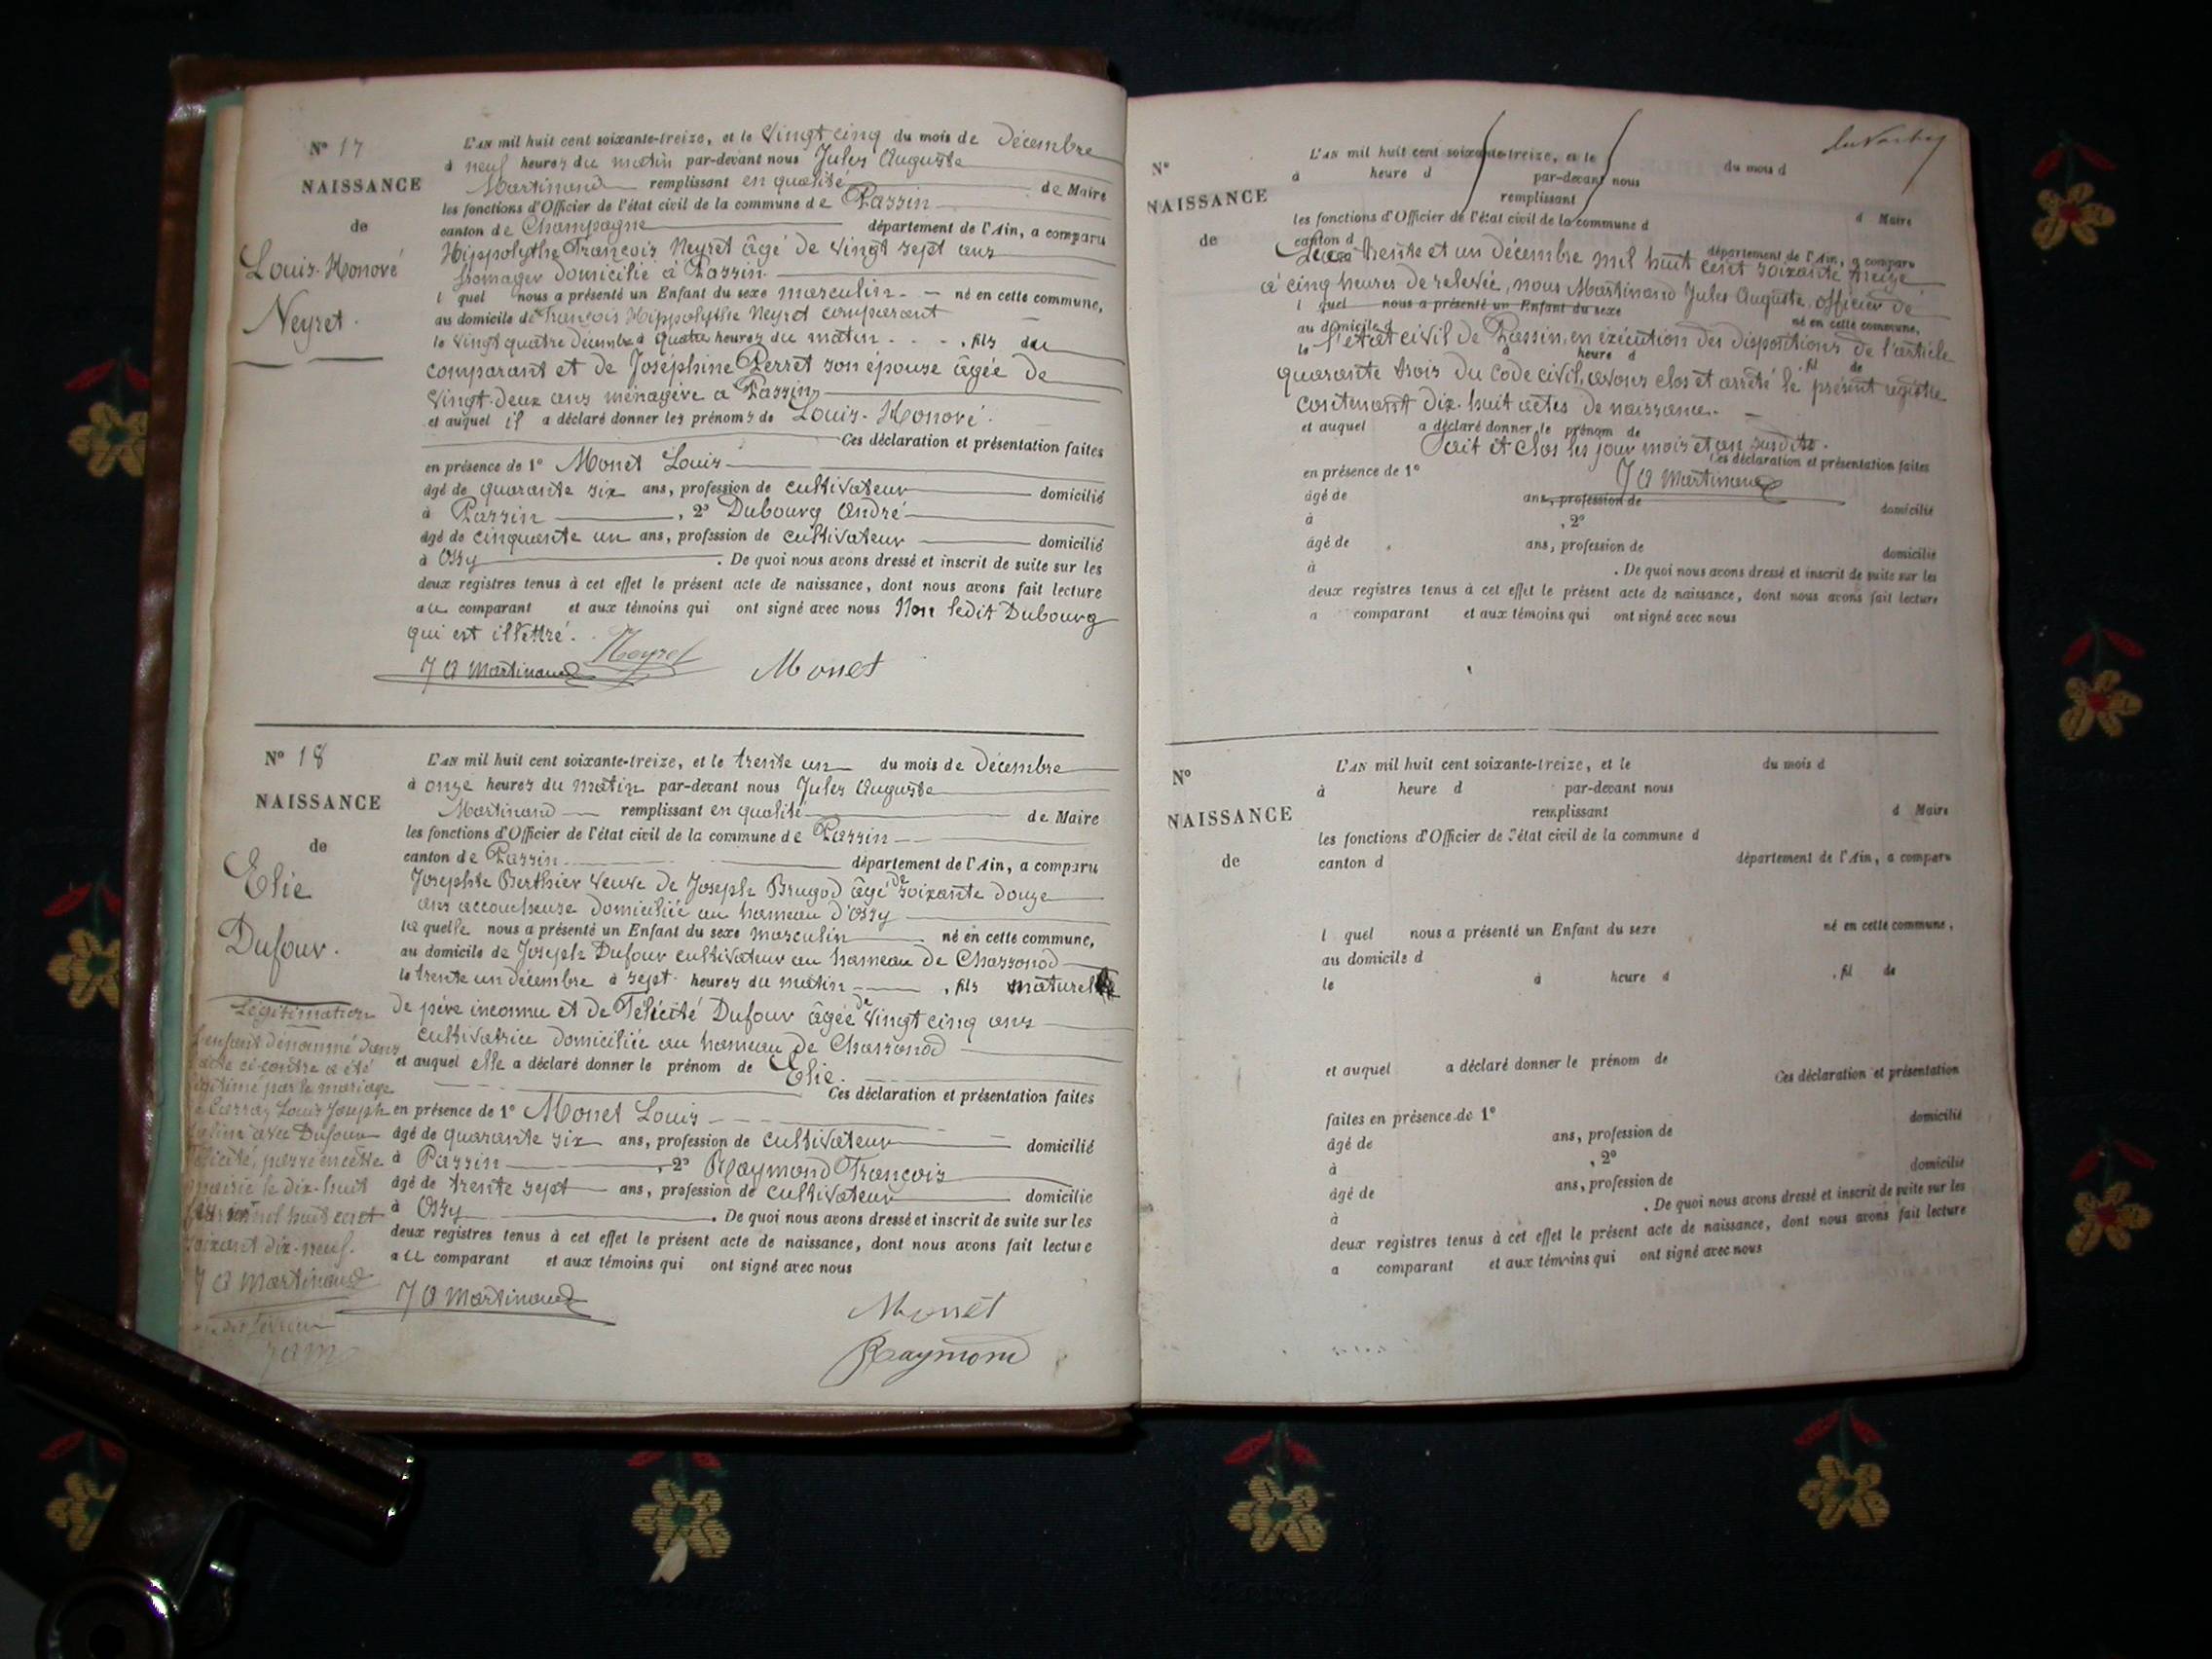 N° 17
NAISSANCE
de
Louis-Honoré
Neyret.
L'AN mil huit cent soixante-treize, et le Vingt cinq du mois de Décembre
à neuf heures du matin par-devant nous Jules Auguste
Martinand remplissant en qualité de Maire
les fonctions d'Officier de l'état civil de la commune de Passin
canton de Champagne département de l'Ain, a comparu
Hippolythe François Neyret âgé de vingt sept ans
fromager domicilié à Passin
l quel nous a présenté un Enfant du sexe masculin né en cette commune,
au domicile de François Hippolythe Neyret comparant
le vingt quatre décembre à quatre heures du matin , fils du
comparant et de Joséphine Perret son épouse âgée de
vingt-deux ans ménagère a Passin
et auquel il a déclaré donner les prénoms de Louis-Honoré.
Ces déclaration et présentation faites
en présence de 1° Monet Louis
âgé de quarante six ans, profession de cultivateur domicilié
à Passin , 2° Dubourg André
âgé de cinquante un ans, profession de cultivateur domicilié
à Ossy . De quoi nous avons dressé et inscrit de suite sur les
deux registres tenus à cet effet le présent acte de naissance, dont nous avons fait lecture
au comparant et aux témoins qui ont signé avec nous Non ledit Dubourg
qui est illettré.
J A Martinand Neyret Monet
N° 18
NAISSANCE
de
Elie
Dufour.
L'AN mil huit cent soixante-treize, et le trente un du mois de Décembre
à onze heures du matin par-devant nous Jules Auguste
Martinand remplissant en qualité de Maire
les fonctions d'Officier de l'état civil de la commune de Passin
canton de Passin département de l'Ain, a comparu
Josephte Berthier veuve de Joseph Brugod âgé de soixante douze
ans accoucheuse domiciliée au hameau d'Ossy
la quelle nous a présenté un Enfant du sexe masculin né en cette commune,
au domicile de Joseph Dufour cultivateur au hameau de Chassonod
le trente un décembre à sept heures du matin , fils naturel
de père inconnu et de Félicité Dufour âgée de vingt cinq ans
cultivatrice domiciliée au hameau de Chassonod
et auquel elle a déclaré donner le prénom de Elie.
Ces déclaration et présentation faites
en présence de 1° Monet Louis
âgé de quarante six ans, profession de cultivateur domicilié
à Passin , 2° Raymond François
âgé de trente sept ans, profession de cultivateur domicilié
à Ossy . De quoi nous avons dressé et inscrit de suite sur les
deux registres tenus à cet effet le présent acte de naissance, dont nous avons fait lecture
au comparant et aux témoins qui ont signé avec nous
J A Martinand Monet
Raymond
Légitimation
L'enfant dénommé dans
l'acte ci-contre a été
légitimé par le mariage
Louis Joseph
avec Dufour
Félicité, passé en cette
mairie le dix-huit
mil huit cent
soixant dix-neuf.
J A Martinand
N°
NAISSANCE
de
L'AN mil huit cent soixante-treize, et le du mois d
à heure d par-devant nous
remplissant d Maire
les fonctions d'Officier de l'état civil de la commune d
canton d département de l'Ain, a comparu
trente et un décembre mil huit cent soixante treize
à cinq heures de relevée, nous Martinand Jules Auguste, officier de
l quel nous a présenté un Enfant du sexe
né en cette commune,
au domicile d
l'état civil de Passin, en exécution des dispositions de l'article
le à heure d , fil de
quarante trois du code civil, avons clos et arrêté le présent registre
contenant dix-huit actes de naissance.
et auquel a déclaré donner le prénom de
Fait et clos les jour mois et an susdits.
Ces déclaration et présentation faites
en présence de 1° J A Martinand
âgé de ans, profession de domicilié
à , 2°
âgé de ans, profession de domicilié
à . De quoi nous avons dressé et inscrit de suite sur les
deux registres tenus à cet effet le présent acte de naissance, dont nous avons fait lecture
a comparant et aux témoins qui ont signé avec nous
N°
NAISSANCE
de
L'AN mil huit cent soixante-treize, et le du mois d
à heure d par-devant nous
remplissant d Maire
les fonctions d'Officier de l'état civil de la commune d
canton d département de l'Ain, a comparu
l quel nous a présenté un Enfant du sexe né en cette commune,
au domicile d
le à heure d , fil de
et auquel a déclaré donner le prénom de
Ces déclaration et présentation
faites en présence de 1° domicilié
âgé de ans, profession de
à , 2° domicilié
âgé de ans, profession de
à . De quoi nous avons dressé et inscrit de suite sur les
deux registres tenus à cet effet le présent acte de naissance, dont nous avons fait lecture
a comparant et aux témoins qui ont signé avec nous